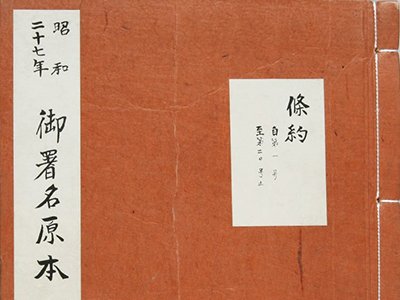 昭和
二十七年
御署名原本
條約
自第一号
至第二〇号止